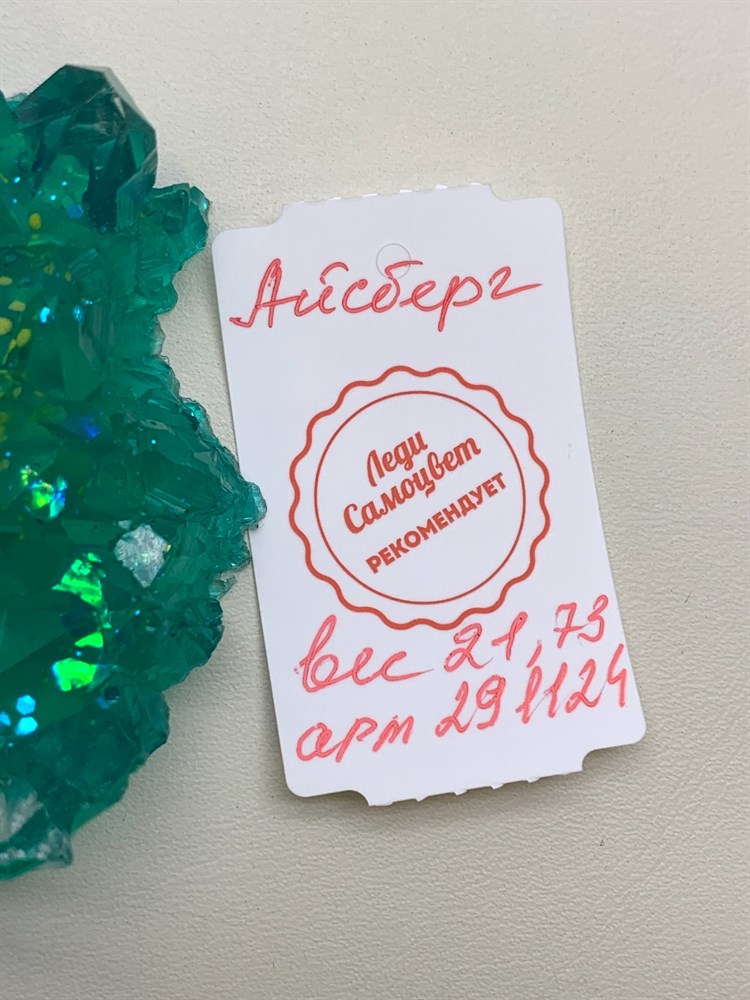 Айсберг
Леди
Самоцвет
РЕКОМЕНДУЕТ
вес 21,73
арт 291124